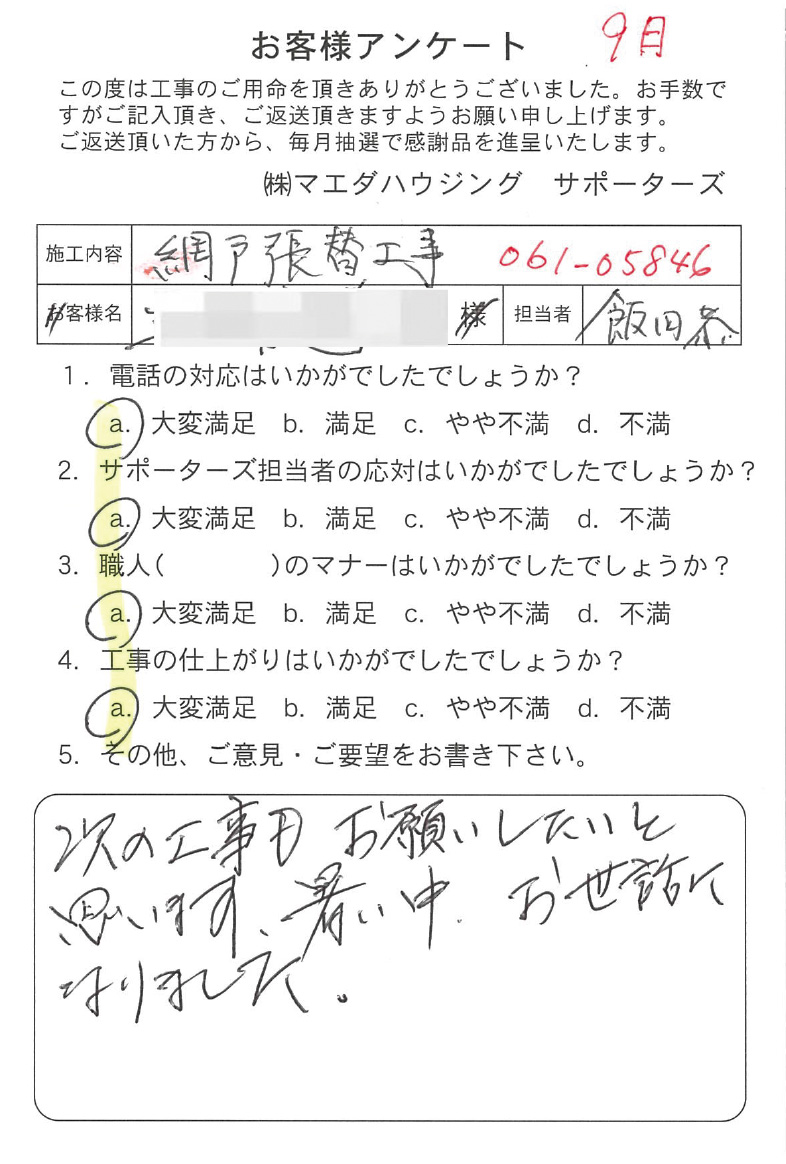 お客様アンケート 9月
この度は工事のご用命を頂きありがとうございました。お手数で
すがご記入頂き、ご返送頂きますようお願い申し上げます。
ご返送頂いた方から、毎月抽選で感謝品を進呈いたします。
㈱マエダハウジング サポーターズ
施工内容 網戸張替工事 061-05846
お客様名 様 担当者 飯田恭
1. 電話の対応はいかがでしたでしょうか?
a. 大変満足 b. 満足 c. やや不満 d. 不満
2. サポーターズ担当者の応対はいかがでしたでしょうか?
a. 大変満足 b. 満足 c. やや不満 d. 不満
3. 職人( )のマナーはいかがでしたでしょうか?
a. 大変満足 b. 満足 c. やや不満 d. 不満
4. 工事の仕上がりはいかがでしたでしょうか?
a. 大変満足 b. 満足 c. やや不満 d. 不満
5. その他、ご意見・ご要望をお書き下さい。
次の工事もお願いしたいと
思います、暑い中、お世話に
なりました。